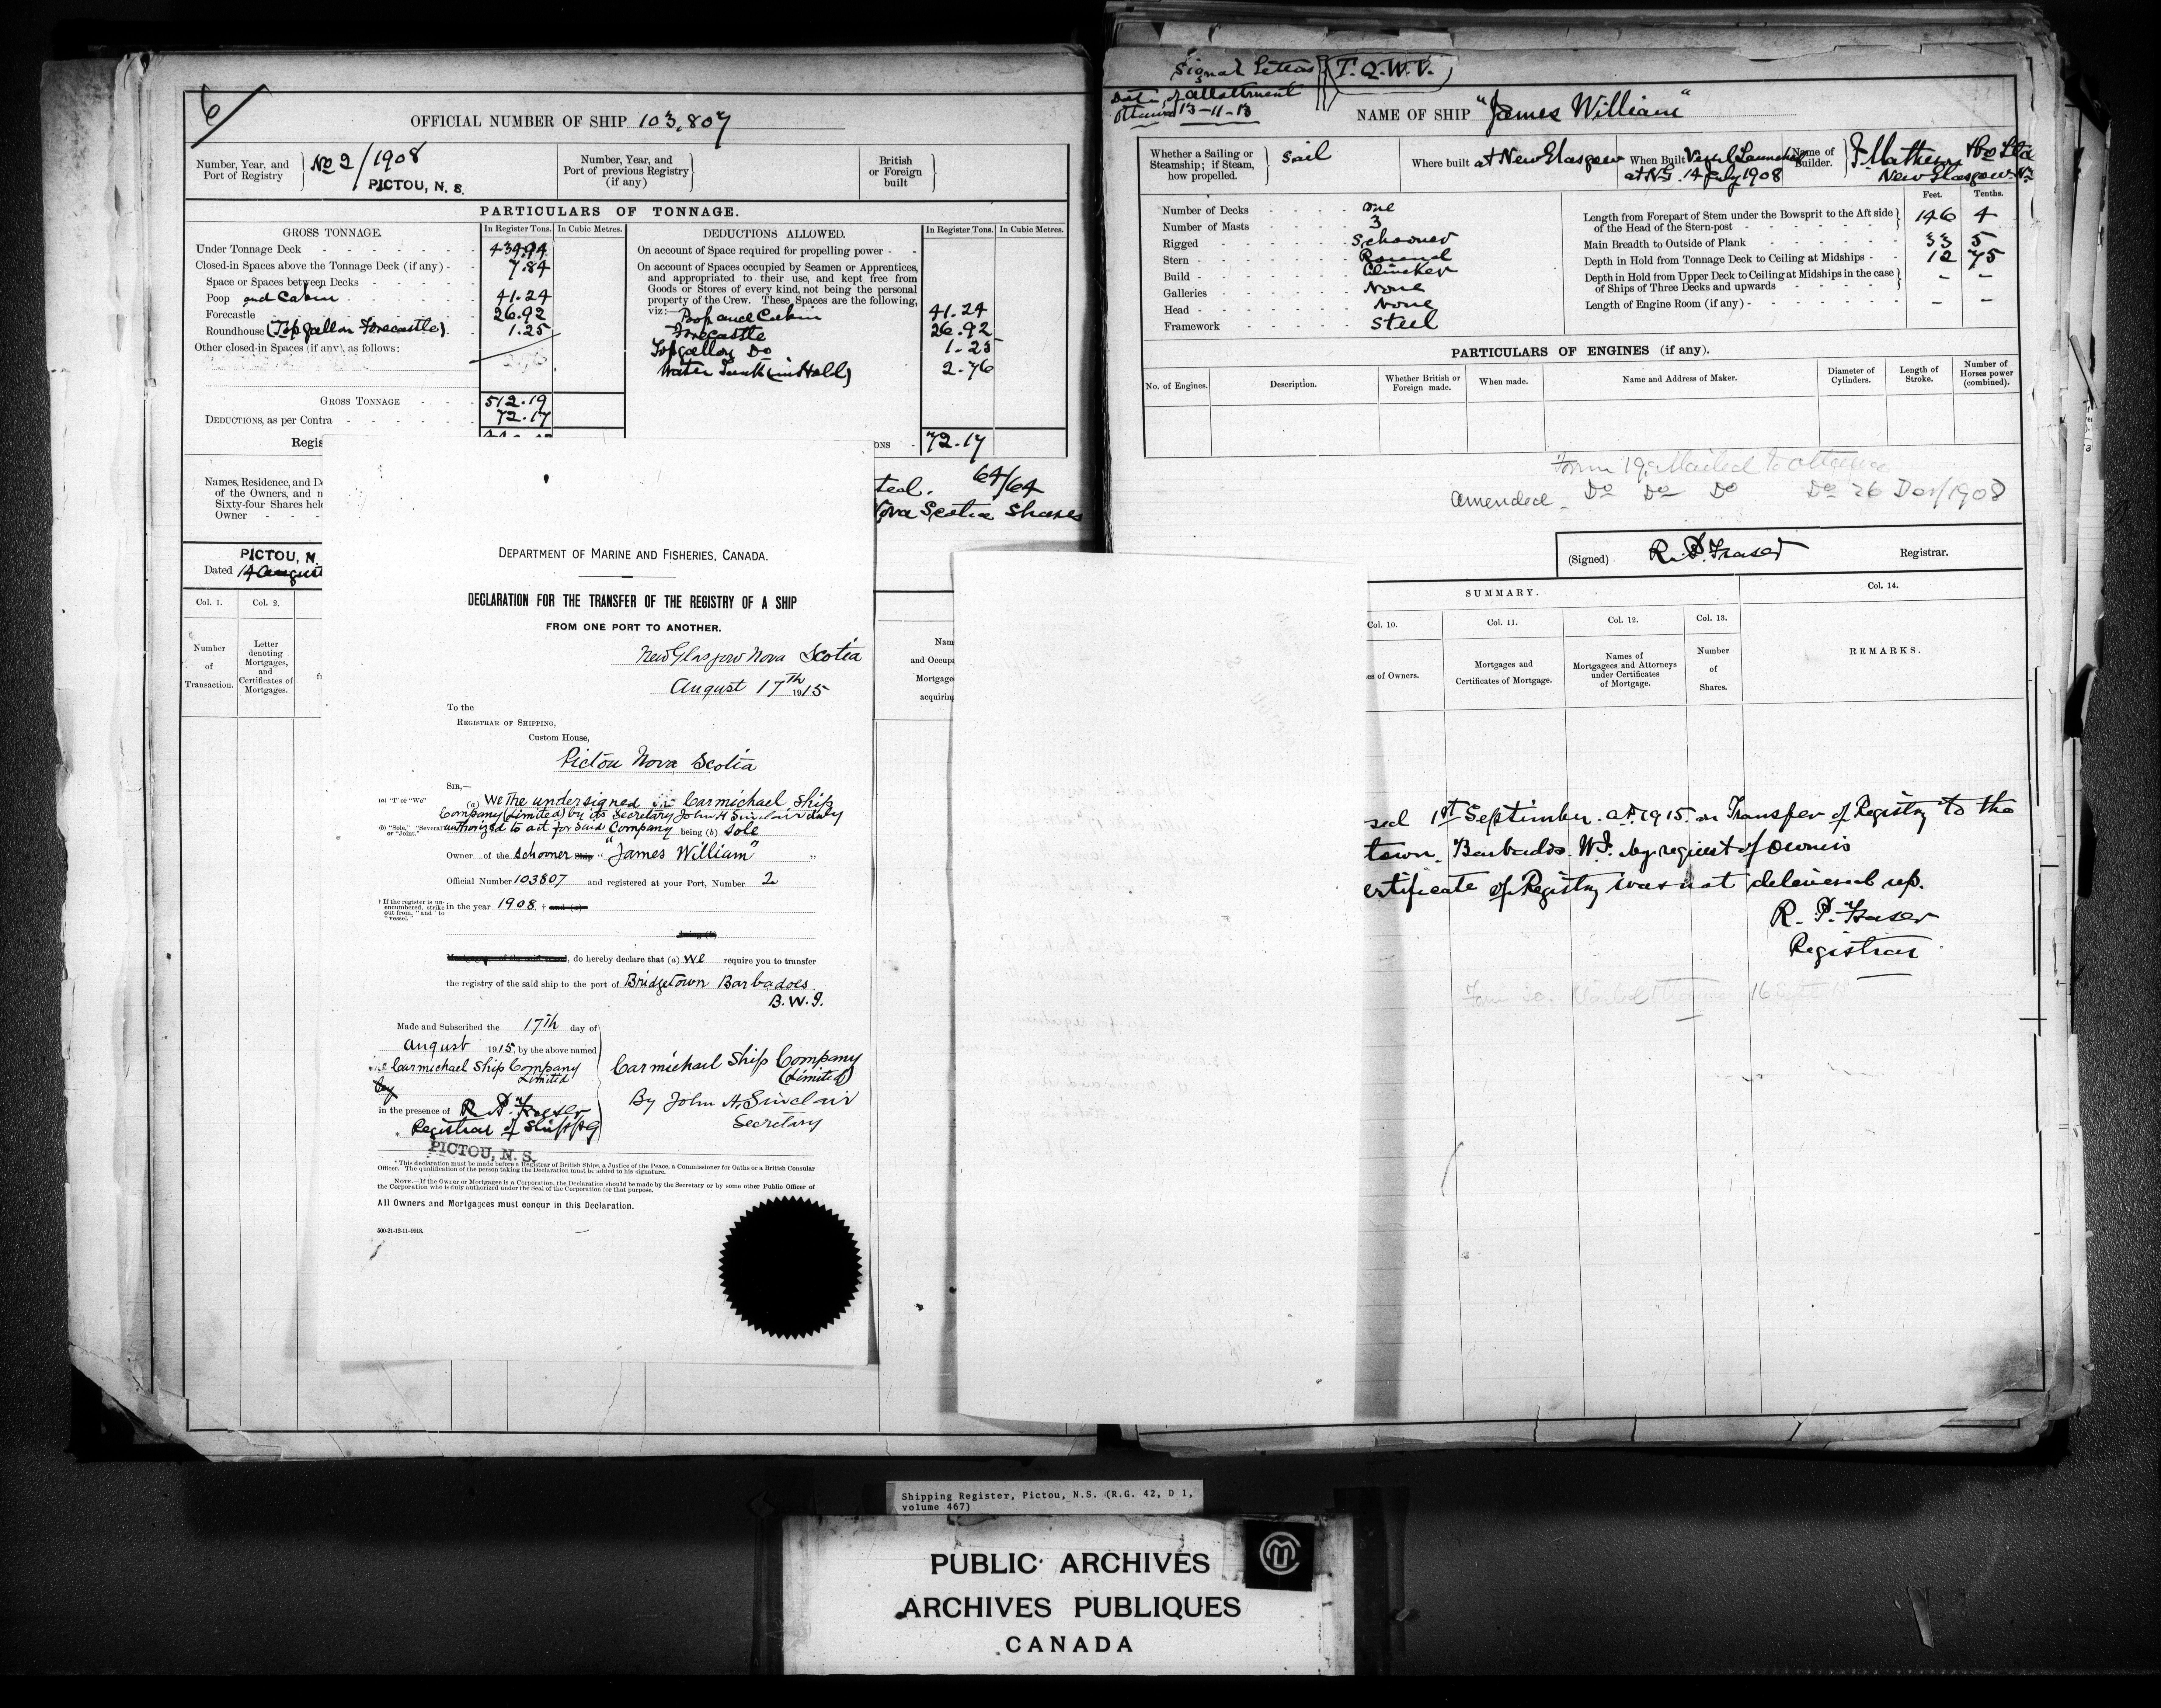 6
OFFICIAL NUMBER OF SHIP 103,807
Number, Year, and Port of Registry No 2/1908 PICTOU, N. S.
Number, Year, and Port of previous Registry (if any)
British or Foreign built
PARTICULARS OF TONNAGE.
GROSS TONNAGE. In Register Tons. In Cubic Metres.
Under Tonnage Deck 434.94
Closed-in Spaces above the Tonnage Deck (if any) 7.84
Space or Spaces between Decks
Poop and Cabin 41.24
Forecastle 26.92
Roundhouse (Topgallan Forecastle) 1.25
Other closed-in Spaces (if any), as follows:
GROSS TONNAGE 512.19
DEDUCTIONS, as per Contra 72.17
Regis
DEDUCTIONS ALLOWED. In Register Tons. In Cubic Metres.
On account of Space required for propelling power
On account of Spaces occupied by Seamen or Apprentices,
and appropriated to their use, and kept free from
Goods or Stores of every kind, not being the personal
property of the Crew. These Spaces are the following,
viz:— Poop and Cabin 41.24
Forecastle 26.92
Topgallon Do 1.25
Water Tank (in Hold) 2.76
ONS 72.17
Names, Residence, and D
of the Owners, and n
Sixty-four Shares held
Owner
ted. 64/64
Nova Scotia Shares
PICTOU, N.
Dated 14 August
Col. 1. Col. 2.
Number of Transaction.
Letter denoting Mortgages, and Certificates of Mortgages.
Nam
and Occup
Mortgage
acquirin
DEPARTMENT OF MARINE AND FISHERIES, CANADA.
DECLARATION FOR THE TRANSFER OF THE REGISTRY OF A SHIP
FROM ONE PORT TO ANOTHER.
New Glasgow Nova Scotia
August 17th 1915
To the
REGISTRAR OF SHIPPING,
Custom House,
Pictou Nova Scotia
SIR,—
(a) "I" or "We" (a) We the undersigned Carmichael Ship
Company (Limited) by its Secretary John A Sinclair duly
(b) "Sole," "Several" or "Joint." authorized to act for said Company being (b) sole
Owner of the schooner Ship "James William"
Official Number 103807 and registered at your Port, Number 2
† If the register is unencumbered, strike out from, "and" to "vessel." in the year 1908. † and (a)
being (b)
, do hereby declare that (a) we require you to transfer
the registry of the said ship to the port of Bridgetown Barbadoes
B.W.I.
Made and Subscribed the 17th day of
August 1915, by the above named
Carmichael Ship Company
Limited
by
in the presence of R. P. Fraser
* Registrar of Shipp'g
PICTOU, N. S.
Carmichael Ship Company
(Limited)
By John A. Sinclair
Secretary
* This declaration must be made before a Registrar of British Ships, a Justice of the Peace, a Commissioner for Oaths or a British Consular
Officer. The qualification of the person taking the Declaration must be added to his signature.
NOTE.—If the Owner or Mortgagee is a Corporation, the Declaration should be made by the Secretary or by some other Public Officer of
the Corporation who is duly authorized under the Seal of the Corporation for that purpose.
All Owners and Mortgagees must concur in this Declaration.
500-21-12-11-9918.
Signal Letters T.Q.W.V.
Date of allottment
Ottawa 13-11-13
NAME OF SHIP "James William"
Whether a Sailing or Steamship; if Steam, how propelled. Sail
Where built at New Glasgow
When Built Vessel Launched at N.G. 14 July 1908
Name of Builder. J. Matheson & Co Ltd New Glasgow N.S.
Number of Decks one
Number of Masts 3
Rigged Schooner
Stern Round
Build Clincker
Galleries None
Head None
Framework Steel
Feet. Tenths.
Length from Forepart of Stem under the Bowsprit to the Aft side of the Head of the Stern-post 146 4
Main Breadth to Outside of Plank 33 5
Depth in Hold from Tonnage Deck to Ceiling at Midships 12 75
Depth in Hold from Upper Deck to Ceiling at Midships in the case of Ships of Three Decks and upwards – –
Length of Engine Room (if any) – –
PARTICULARS OF ENGINES (if any).
No. of Engines. Description. Whether British or Foreign made. When made. Name and Address of Maker. Diameter of Cylinders. Length of Stroke. Number of Horses power (combined).
Form 19 Mailed to Ottawa
amended Do Do Do Do 26 Dec/1908
(Signed) R. P. Fraser Registrar.
SUMMARY.
Col. 10. Col. 11. Col. 12. Col. 13. Col. 14.
es of Owners.
Mortgages and Certificates of Mortgage.
Names of Mortgagees and Attorneys under Certificates of Mortgage.
Number of Shares.
REMARKS.
sed 1st September A.D. 1915. on Transfer of Registry to the
town, Barbados. W.I. by request of owners
ertificate of Registry was not delivered up.
R. P. Fraser
Registrar
Form 20. Mailed Ottawa 16 Sept 15
Shipping Register, Pictou, N.S. (R.G. 42, D 1,
volume 467)
PUBLIC ARCHIVES
ARCHIVES PUBLIQUES
CANADA